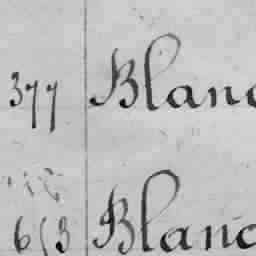 377 Blanc
653 Blanc